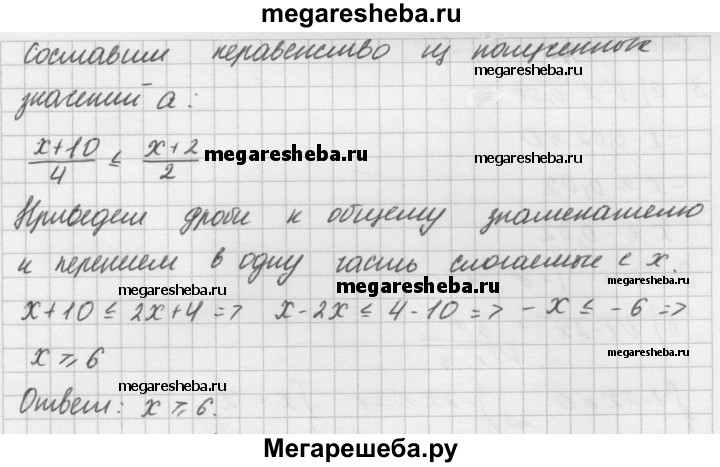 megaresheba.ru
Составим неравенство из полученных
megaresheba.ru
значений a:
(x+10)/4 ≤ (x+2)/2
megaresheba.ru
megaresheba.ru
Приведем дроби к общему знаменателю
и перенесем в одну часть слагаемые с x.
megaresheba.ru
megaresheba.ru
megaresheba.ru
x+10 ≤ 2x+4 => x-2x ≤ 4-10 => -x ≤ -6 =>
x ⩾ 6
megaresheba.ru
megaresheba.ru
Ответ: x ⩾ 6.
Мегарешеба.ру